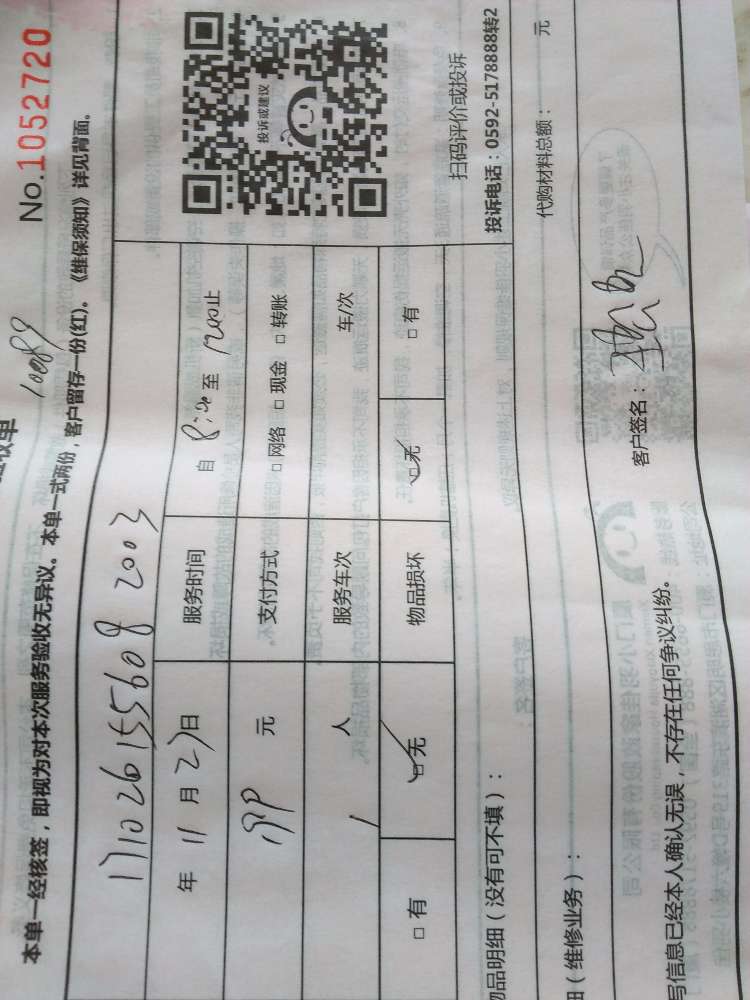 No.1052720
10089
本单一经核签，即视为对本次服务验收无异议。本单一式两份，客户留存一份(红)。《维保须知》详见背面。
1710261556092003
年 11 月 23日 服务时间 自 8:00 至 1200止
元 支付方式 □网络 □现金 □转账
1 人 服务车次 车/次
□有 □无 物品损坏 □无 □有
投诉或建议
扫码评价或投诉
投诉电话：0592-5178888转2
物品明细（没有可不填）：
代购材料总额： 元
（维修业务）：
写信息已经本人确认无误，不存在任何争议纠纷。 客户签名：